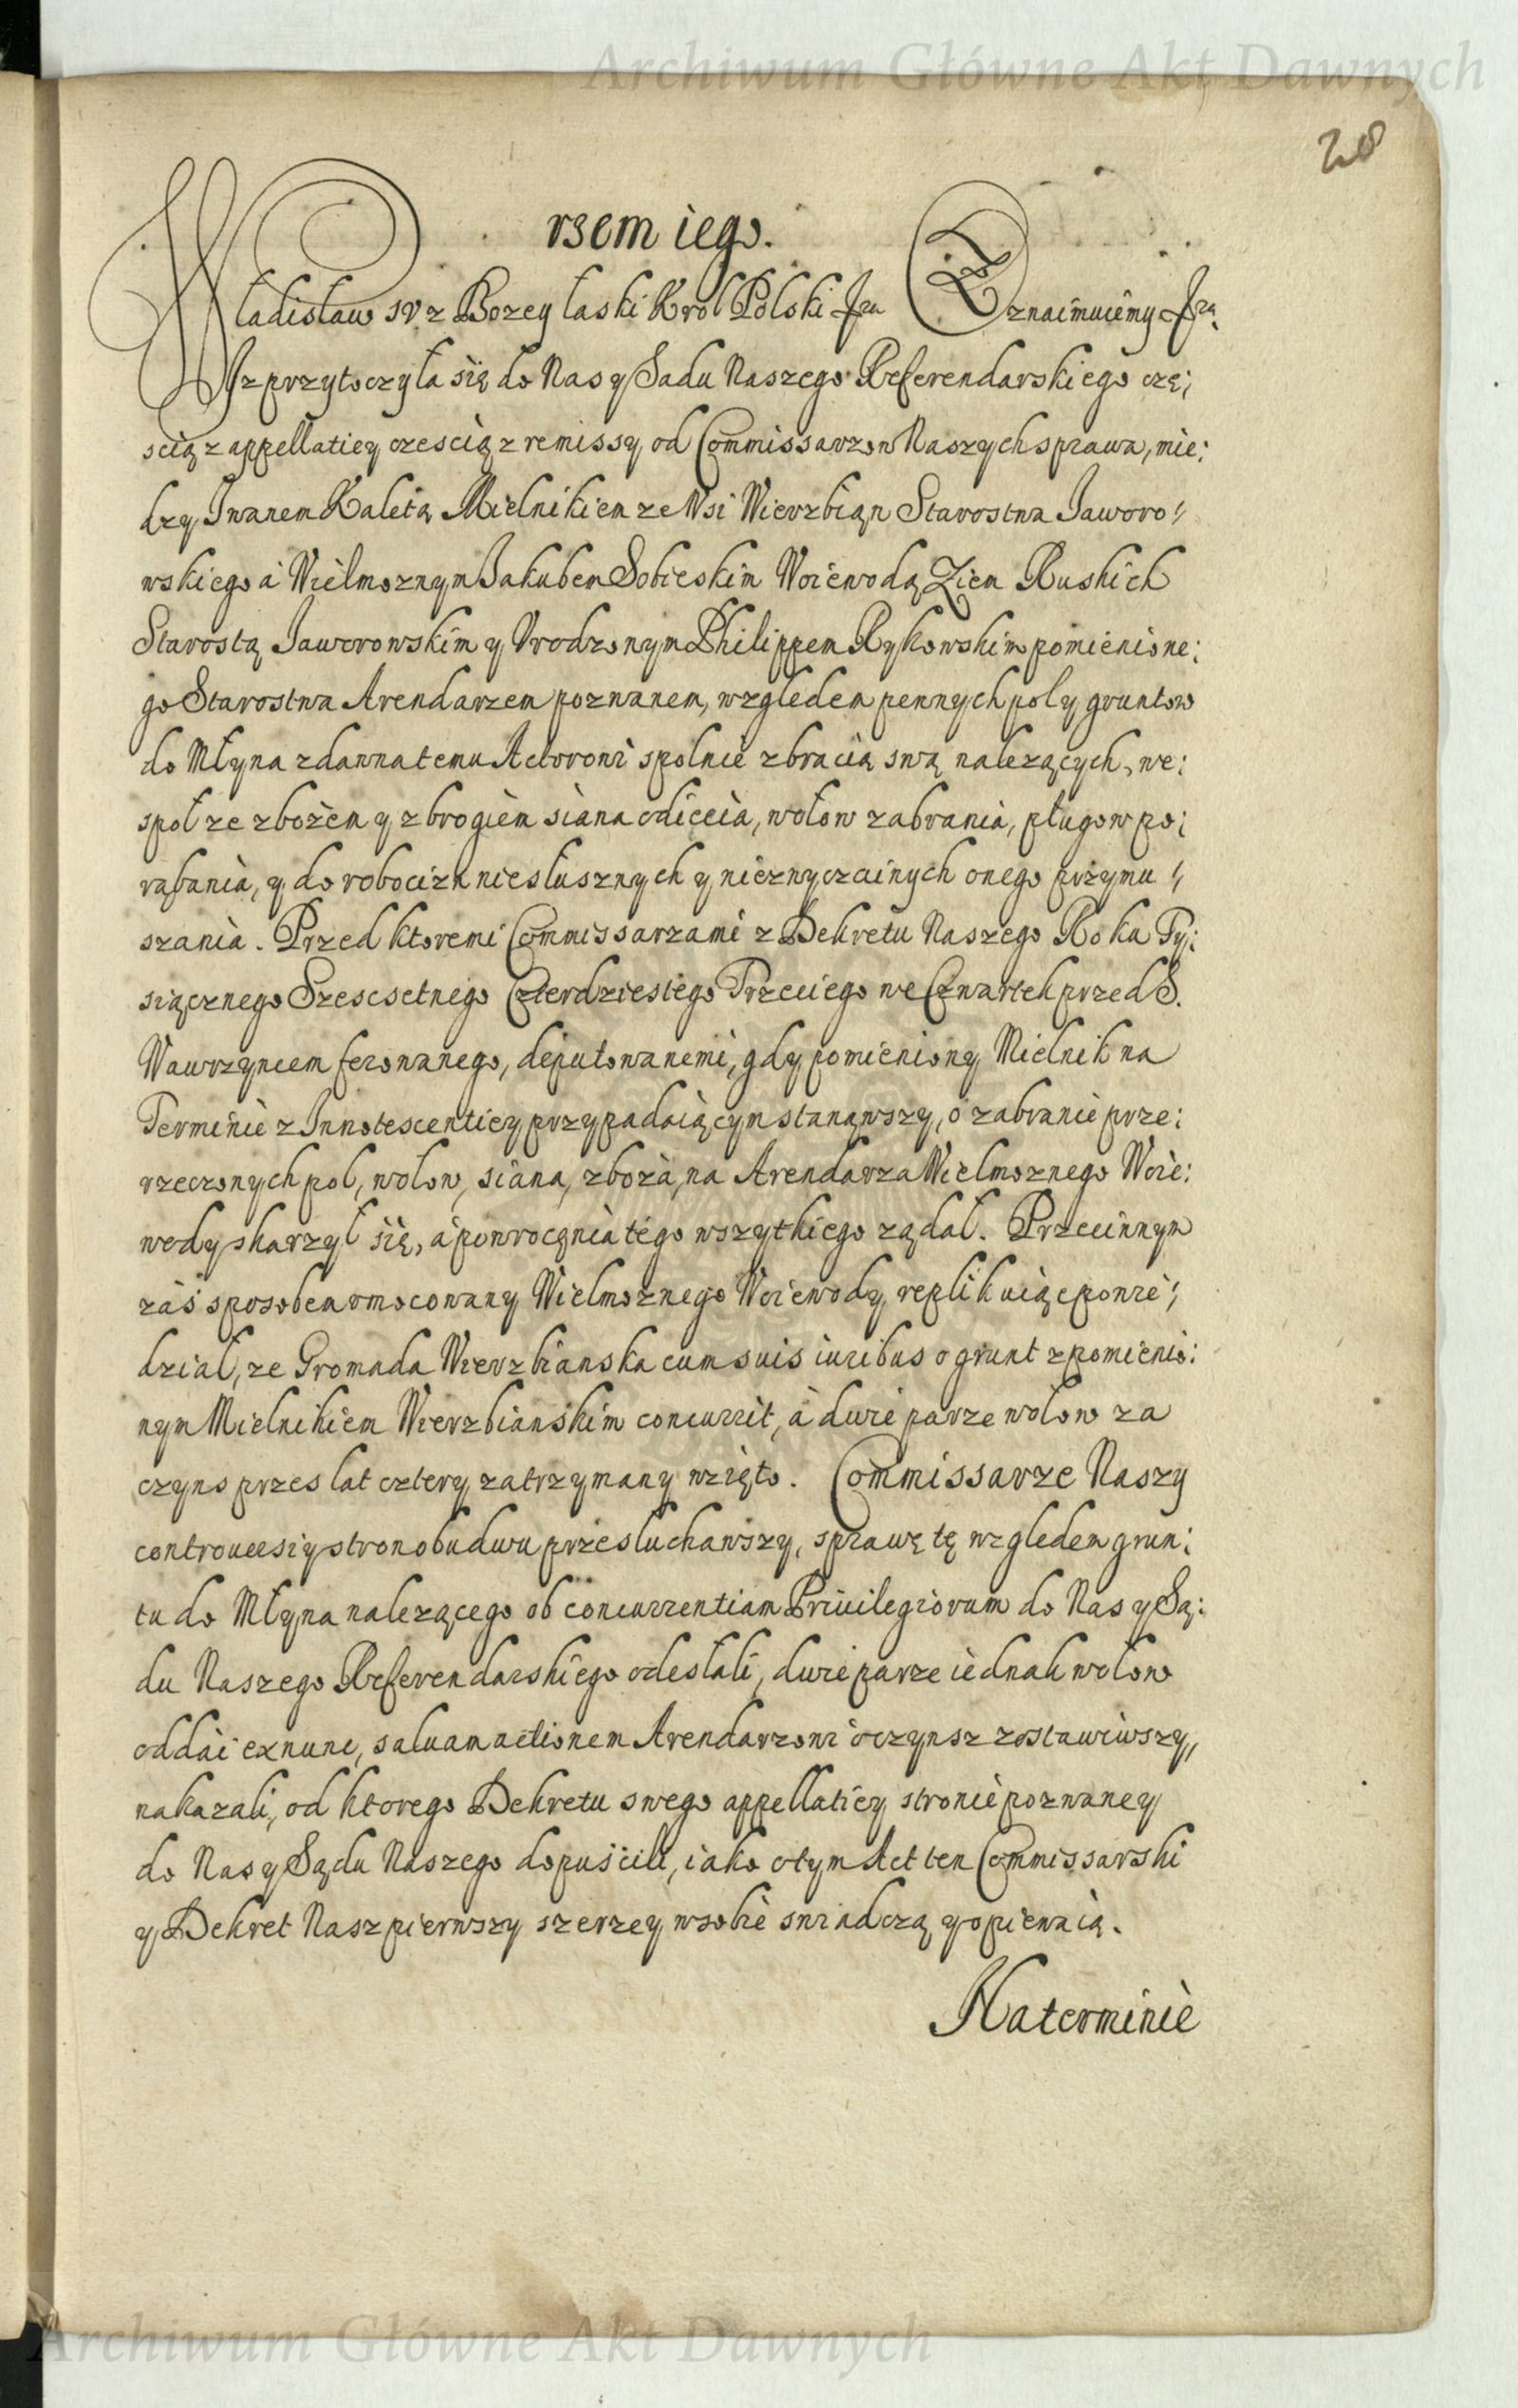 Archiwum Główne Akt Dawnych
28
rsem iego.
Władisław IV z Bozey łaski Krol Polski &ra Oznaimuiemy &ra.
Iz przytoczyła się do Nas y Sadu Naszego Referendarskiego czę:
scią z appellatiey czescią z remissy od Commissarzow Naszych sprawa, mie:
dzy Iwanem Kaletą Mielnikiem ze Wsi Wierzbian Starostwa Iaworo:
wskiego a Wielmoznym Iakubem Sobieskim Woiewodą Ziem Ruskich
Starostą Iaworowskim y Vrodzonym Philippem Rykowskim pomienione:
go Starostwa Arendarzem poznanem, wzgledem pewnych pol y gruntow
do Młyna zdawna temu Actorowi spolnie z bracią swą nalezących, we:
społ ze zbożem y z brogiem siana odięcia, wołow zabrania, pługow po:
rąbania, y do robocizn niesłusznych y niezwyczainych onego przymu:
szania. Przed ktoremi Commissarzami z Dekretu Naszego Roku Ty:
siącznego Szescsetnego Czterdziestego Trzeciego we Czwartek przed S.
Wawrzyncem ferowanego, deputowanemi, gdy pomieniony Mielnik na
Terminie z Innotescentiey przypadaiącym stanąwszy, o zabranie prze:
rzeczonych pol, wołow, siana, zboża, na Arendarza Wielmoznego Woie:
wody skarzył się, a powrocęnia tego wszytkiego ządał. Przeciwnym
zaś sposobem vmocowany Wielmoznego Woiewody, replikuiąc powie:
dział, ze Gromada Wierzbianska cum suis iuribus o grunt z pomienio:
nym Mielnikiem Wierzbianskim concurrit, a dwie parze wołow za
czyns przes lat cztery zatrzymany wzięto. Commissarze Naszy
controuersiy stron obudwu przesłuchawszy, sprawę tę wzgledem grun:
tu do Młyna nalezącego ob concurrentiam Priuilegiorum do Nas y Są:
du Naszego Referendarskiego odesłali, dwie parze iednak wołow
oddać ex nunc, saluam actionem Arendarzowi o czynsz zostawiwszy,
nakazali, od ktorego Dekretu swego appellatiey stronie pozwaney
do Nas y Sądu Naszego dopuścili, iako o tym Act ten Commissarski
y Dekret Nasz pierwszy szerzey w sobie swiadczą y opiewaią.
Na terminie
Archiwum Główne Akt Dawnych